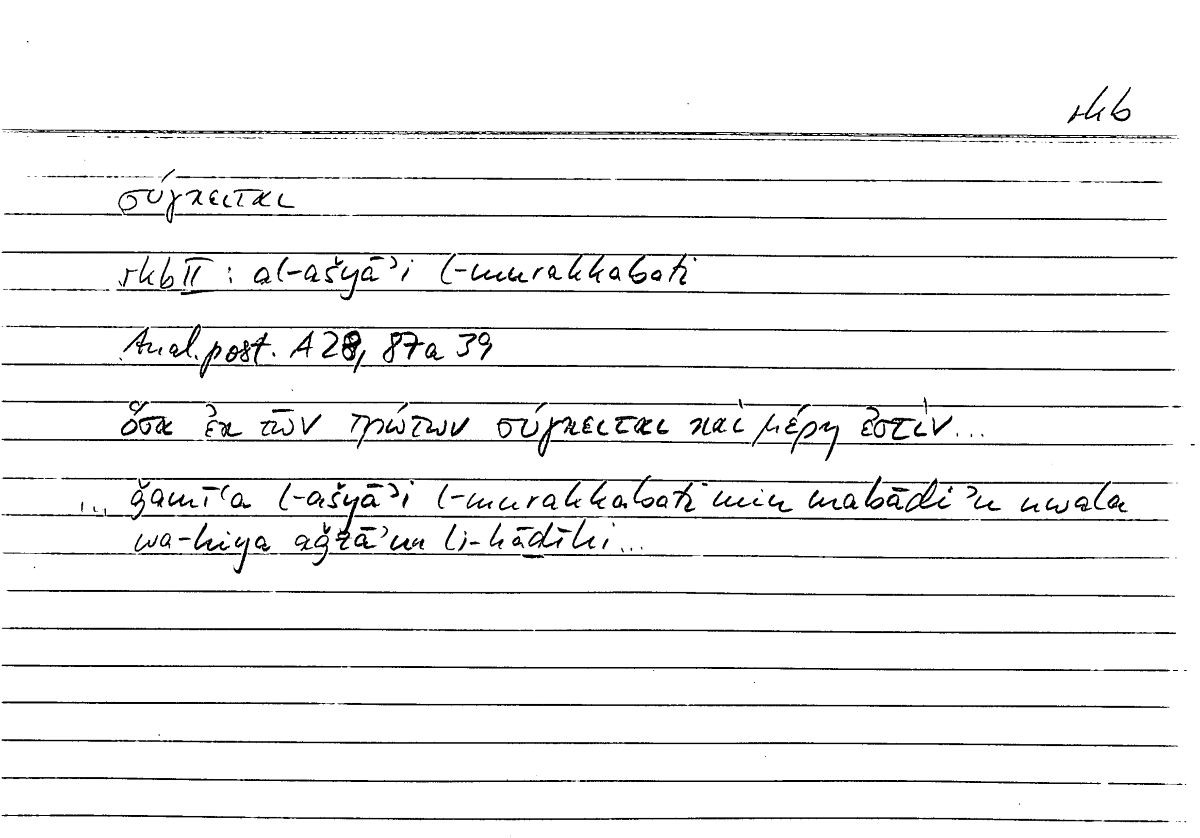 rkb
σύγκειται
rkb II : al-ašyāʾi l-murakkabati
Anal. post. A 28, 87a 39
ὅσα ἐκ τῶν πρώτων σύγκειται καὶ μέρη ἐστίν...
... ǧamīʿa l-ašyāʾi l-murakkabati min mabādiʾu uwala
wa-hiya aǧzāʾun li-hāḏihi...